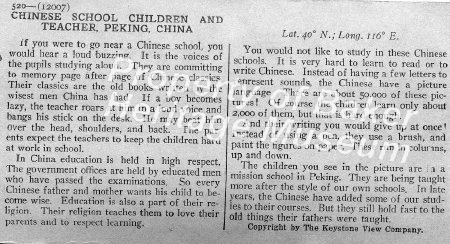 520—(12007)
CHINESE SCHOOL CHILDREN AND
TEACHER, PEKING, CHINA
Lat. 40° N.; Long. 116° E.
If you were to go near a Chinese school, you
would hear a loud buzzing. It is the voices of
the pupils studying aloud. They are committing
to memory page after page of the classics.
Their classics are the old books written by the
wisest men China has had. If a boy becomes
lazy, the teacher roars at him in a harsh voice and
bangs his stick on the desk. He may beat him
over the head, shoulders, and back. The
expect the teachers to keep the children hard
at work in school.
In China education is held in high respect.
The government offices are held by educated men
who have passed the examinations. So every
Chinese father and mother wants his child to be-
come wise. Education is also a part of their re-
ligion. Their religion teaches them to love their
parents and to respect learning.
You would not like to study in these Chinese
schools. It is very hard to learn to read or to
write Chinese. Instead of having a few letters to
represent sounds, the Chinese have a picture
language. There are about 50,000 of these pic-
tures! Of course the children learn only about
2,000 of them, but that is
and thinking you would give up at once!
Instead of using a pen, they use a brush, and
paint the figures on paper. These run in columns,
up and down.
The children you see in the picture are in a
mission school in Peking. They are being taught
more after the style of our own schools. In late
years, the Chinese have added some of our stud-
ies to their courses. But they still hold fast to the
old things their fathers were taught.
Copyright by The Keystone View Company.
Property of Baker
Heritage Museum